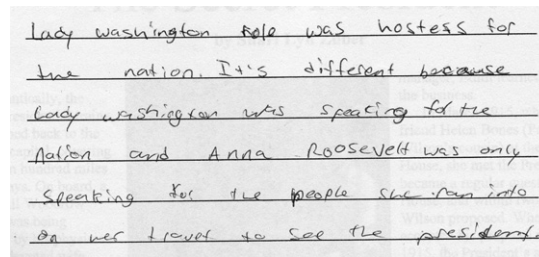 Lady washington role was hostess for
the nation. It's different because
Lady washington was speacing for the
nation and Anna Roosevelt was only
speaking for the people she ran into
on her travel to see the president.